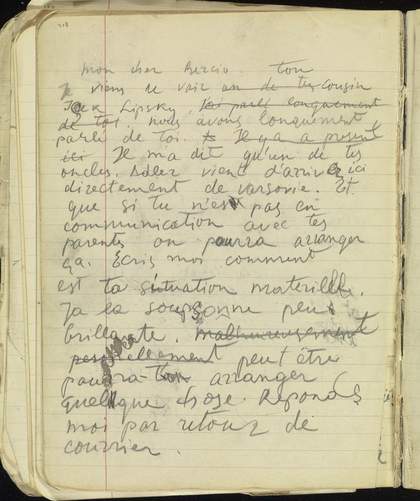 mon cher Bercio ton
Je viens de voir un de tes cousin
Jack Lipsky. Il parlé longuement
de toi nous avons longuement
parlé de toi. Il y a a present
ici Je m'a dit qu'un de tes
oncles. Adler vient d'arriver ici
directement de varsovie. Et
que si tu n'es pas en
communication avec tes
parents on pourra arranger
ça. Écris moi comment
est ta situation materielle.
Ja la soupsonne peu
brillante. malheureusement
personellement peut être
pourra-ton arranger
quelque chose. Reponds
moi par retour de
courrier.